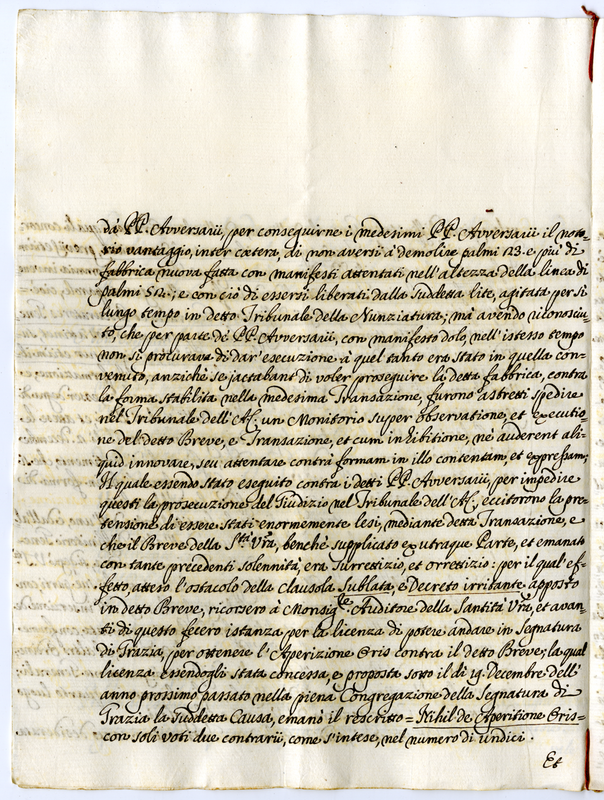 dà PP. Avversarii, per conseguirne i medesimi PP. Avversarii il noto=
rio vantaggio, inter cætera, di non aversi à demolire palmi 123. e più di
fabbrica nuova fatta con manifesti attentati nell'altezza della linea di
palmi 512.; e con ciò di essersi liberati dalla suddetta lite, agitata per sì
lungo tempo in detto Tribunale della Nunziatura; mà avendo riconosciu=
to, che per parte de PP. Avversarii, con manifesto dolo, nell'istesso tempo
non si procurava di dar' esecuzione à quel tanto era stato in quella con=
venuto, anziche se jactabant di voler proseguire la detta fabbrica, contra
la forma stabilita nella medesima Transazione, furono astretti spedire
nel Tribunale dell'A.C. un Monitorio super observatione, et executio
ne del detto Breve, e Transazione, et cum inhibitione, nè auderent ali=
quid innovare, seu attentare contrà formam in illo contentam, et expressam;
Il quale essendo stato eseguito contra i detti PP. Avversarii, per impedire
questi la prosecuzione del Giudizio nel Tribunale dell'A.C. eccitorono la pre=
tensione di essere stati enormemente lesi, mediante detta Transazione, e
che il Breve della S.tà Vrã, benchè supplicato ex utraque Parte, et emanato
con tante precedenti solennità, era surrettizio, et orrettizio: per il qual' ef=
fetto, atteso l'ostacolo della clausola Sublata, e Decreto irritante apposto
in detto Breve, ricorsero à Monsig.re Auditore della Santità Vrã, et avan=
ti di questo fecero istanza per la licenza di potere andare in Segnatura
di Grazia, per ottenere l'Aperizione Oris contra il detto Breve; la qual
licenza essendogli stata concessa, e proposta sotto il dì 19. Decembre dell'
anno prossimo passato nella piena Congregazione della Segnatura di
Grazia la suddetta Causa, emanò il rescritto = Nihil de Aperitione Oris =
con soli voti due contrarii, come s'intese, nel numero di undici.
Et